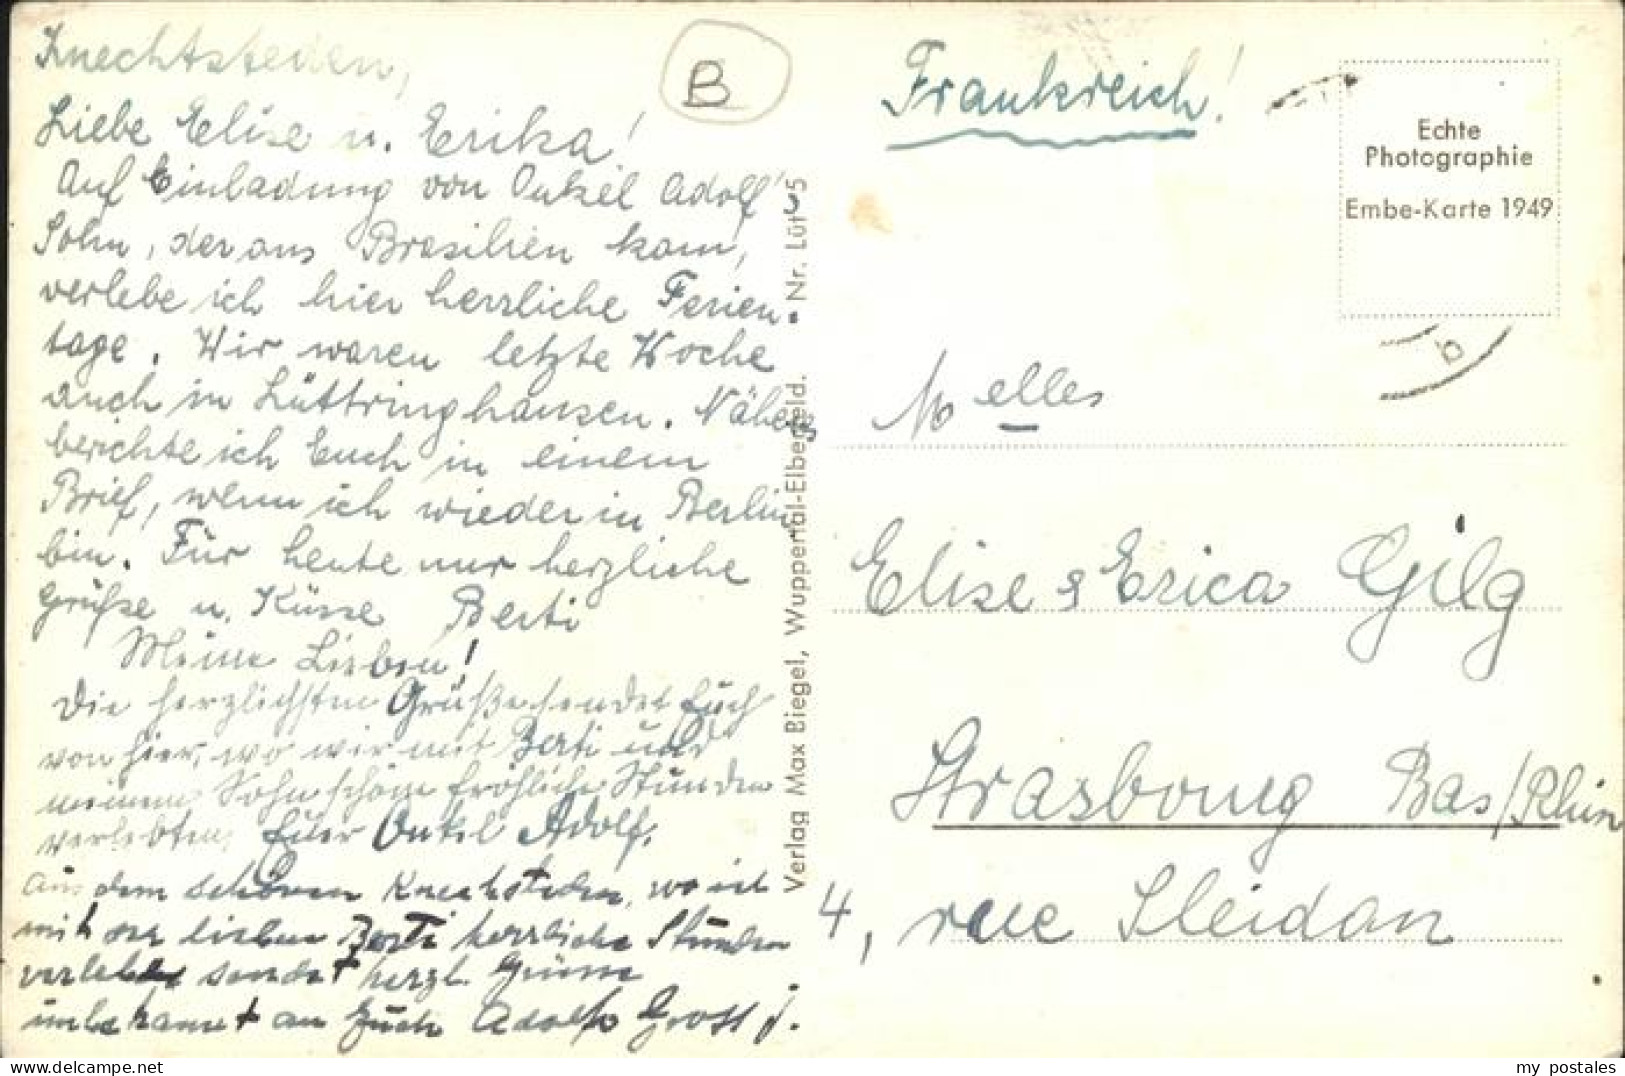 Knechtsteden,
Liebe Elise u. Erika!
Auf Einladung von Onkel Adolf's
Sohn, der aus Brasilien kam,
verlebe ich hier herrliche Ferien-
tage. Wir waren letzte Woche
auch in Lüttringhausen. Näheres
berichte ich Euch in einem
Brief, wenn ich wieder in Berlin
bin. Für heute nur herzliche
Grüße u. Küsse Berti
Meine Lieben!
Die herzlichsten Grüße sendet Euch
von hier, wo wir mit Berti und
meinem Sohn schöne fröhliche Stunden
verlebten, Euer Onkel Adolf.
Aus dem schönen Knechtsteden, wo ich
mit der lieben Berti herrliche Stunden
verlebe sendet herzl. Grüsse
unbekannt an Euch Adolfo Gross j.
B
Verlag Max Biegel, Wuppertal-Elberfeld. Nr. Lüt 5
Frankreich!
Echte
Photographie
Embe-Karte 1949
b
Melles
Elise & Erica Gilg
Strasbourg Bas/Rhin
4, rue Sleidan
my_postales
https://www.delcampe.net